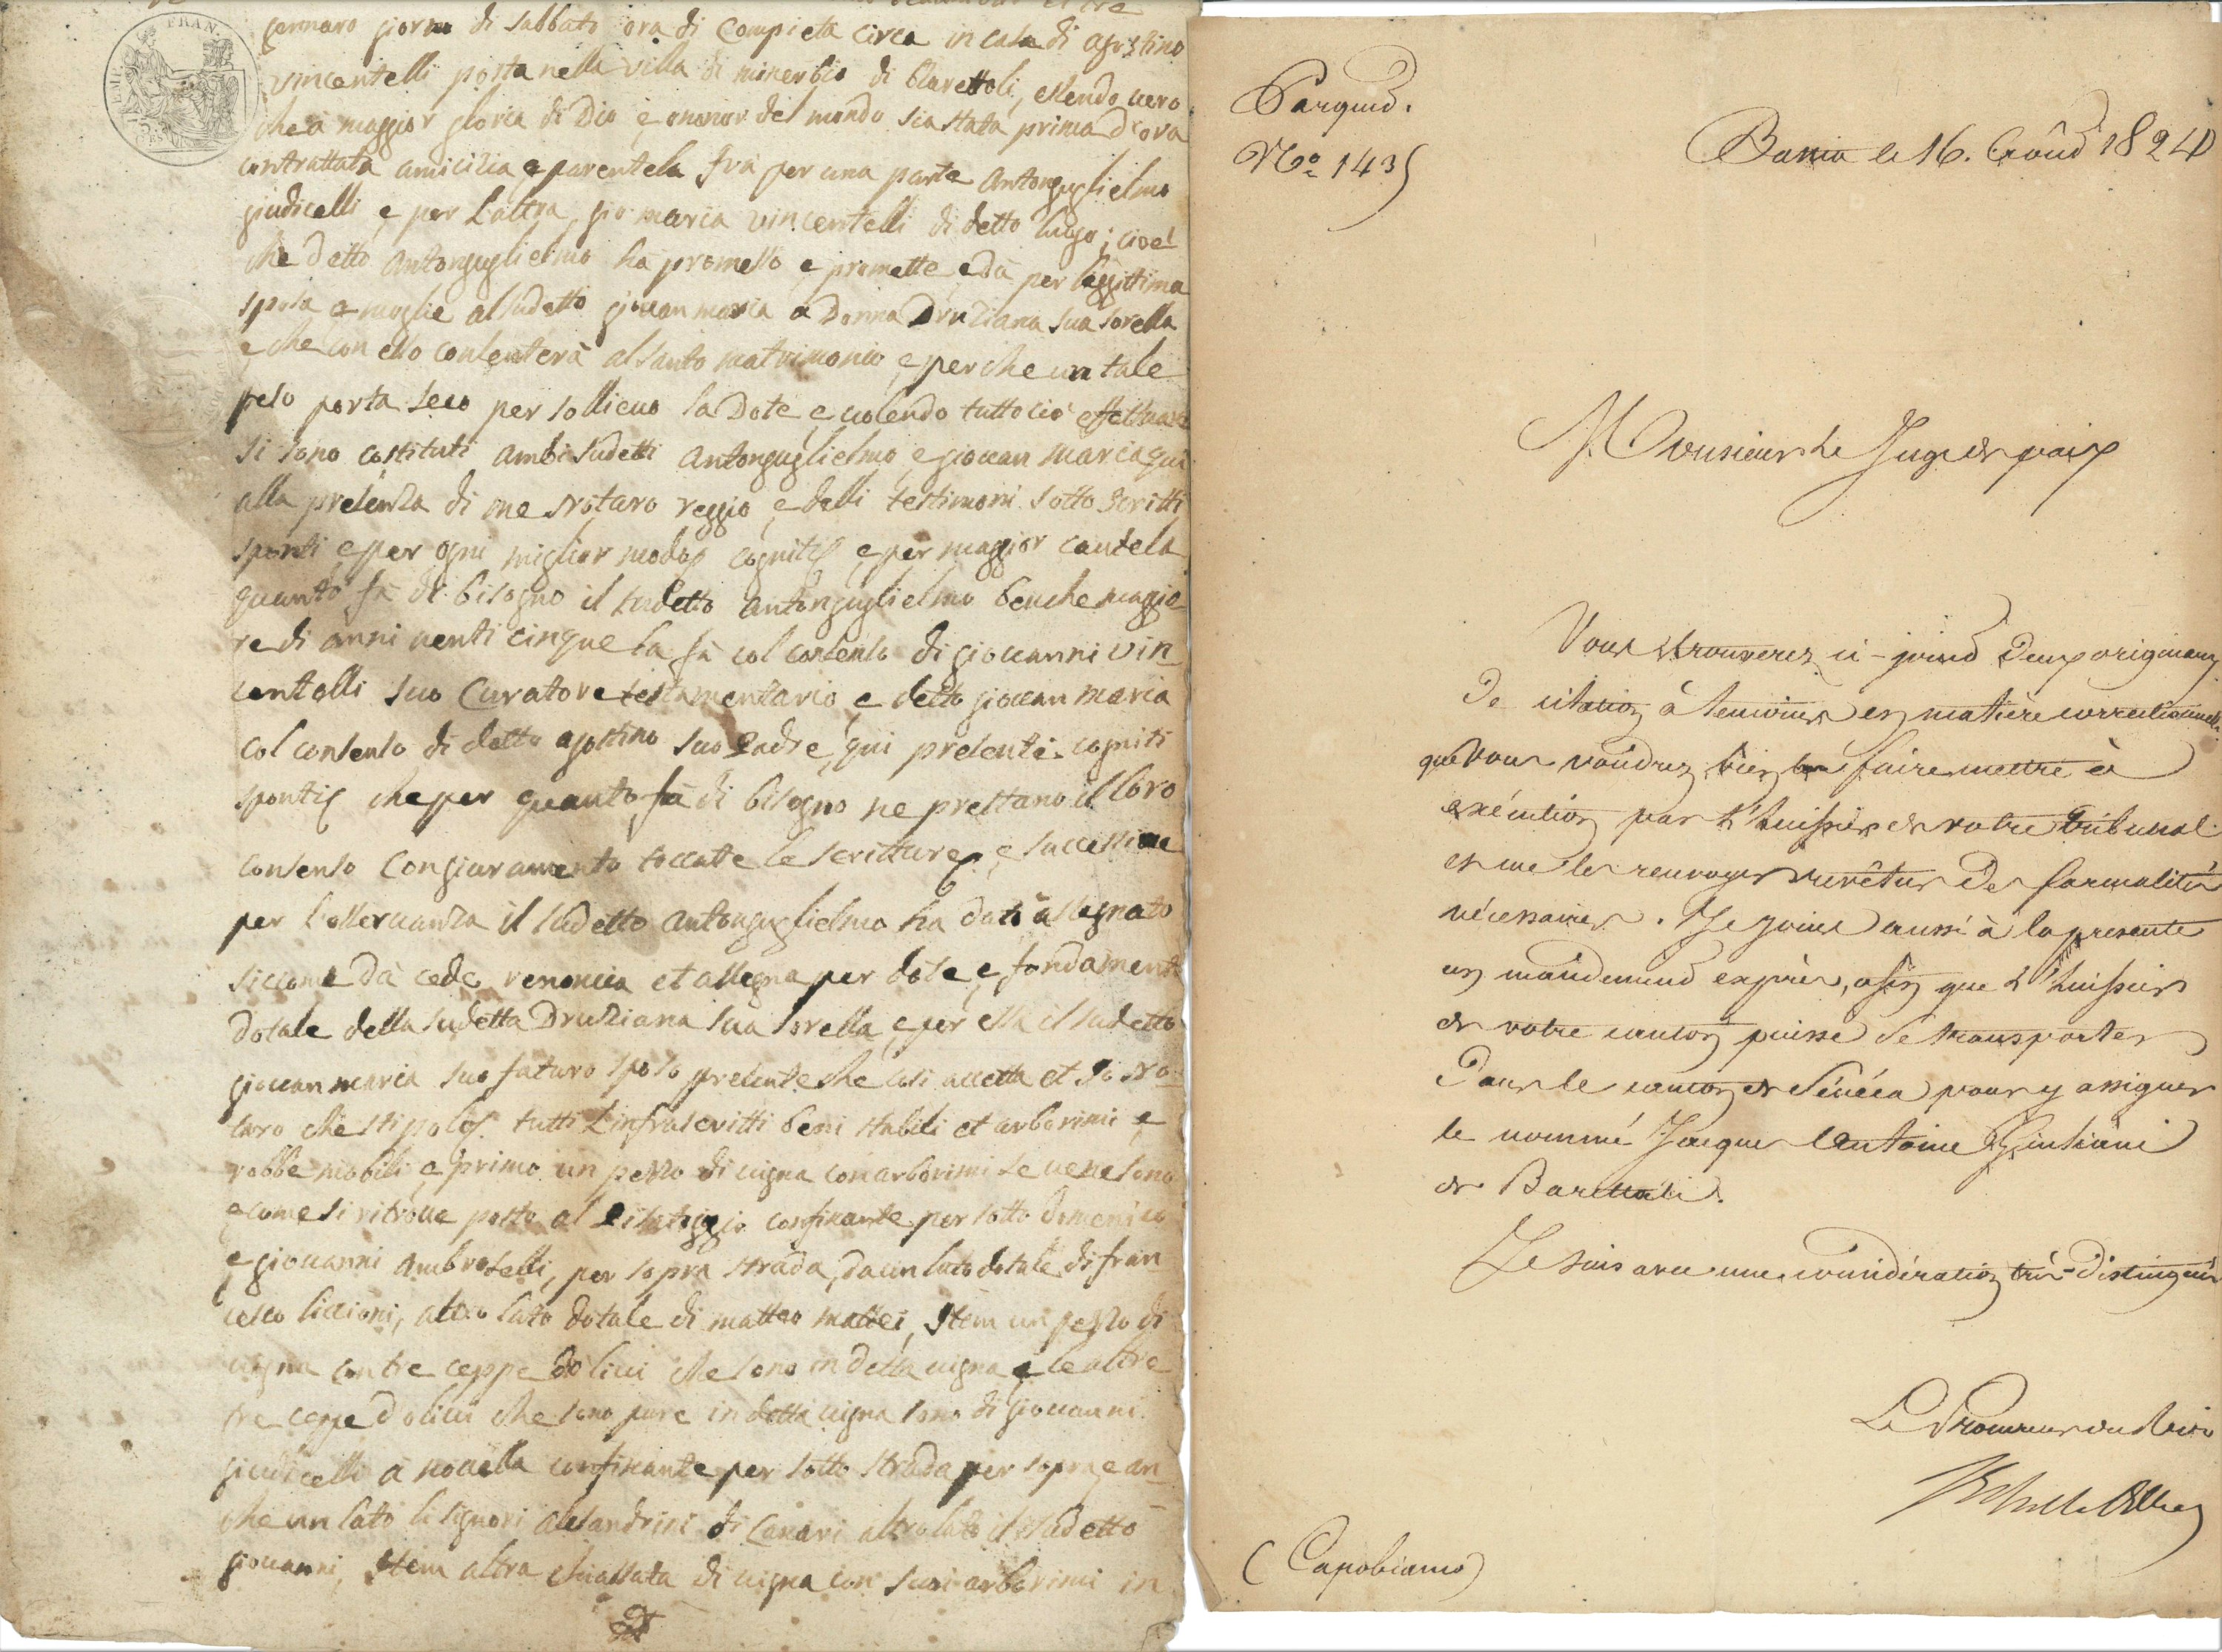 gennaro giorno di sabbato ora di Compieta circa in casa di agostino
vincentelli posta nella villa di minerbio di Barettoli, essendo uero
che à maggior gloria di Dio e onnor del mondo sia stata prima d'ora
contrattata amicizia e parentela frà per una parte Antonguglielmo
giudicelli e per L'altra, gio maria vincentelli di detto luogo; cioè
che detto Antonguglielmo hà promesso e promette, e dà per leggittima
sposa e moglie al sudetto giouan maria a Donna Druziana sua sorella
e che con esso consenterà al santo matrimonio e perche un tale
peso porta seco per sollieuo la Dote e uolendo tutto ciò effettuare
si sono costituti ambi sudetti Antonguglielmo e giouan maria qui
alla presenza di me Notaro reggio e delli testimoni sotto scritti
sponti e per ogni miglior modo cogniti e per maggior cautela
quanto fà di bisogno il sudetto Antonguglielmo benche maggio
re di anni uenti cinque la fà col consenso di giouanni vin
centelli suo Curatore testamentario e detto giouan maria
col consenso di detto agostino suo Padre, qui presenti cogniti
sponti che per quanto fà di bisogno ne prestano il loro
consenso con giuramento toccate le scritture e successiue
per l'osseruanza il sudetto Antonguglielmo hà dato assegnato
siccome dà cede renoncia et assegna per dote e fondamento
Dotale della sudetta Druziana sua sorella, e per essa il sudetto
giouan maria suo futuro sposo presente che così accetta et Io No
taro che stipolo tutti L'infrascritti beni stabili et arborimi e
robbe mobili e primo un pezzo di uigna con arborimi se ue ne sono
e come si ritroua posto al confinante per sotto domenico
e giouanni Ambroselli, per sopra strada, da un lato dotale di fran
cesco liccioni, altro lato dotale di matteo mattei, Item un pezzo di
uigna con tre ceppe d'oliui che sono in detta uigna e le altre
tre ceppe d'oliui che sono pure in detta uigna sono di giouanni
giudicelli à nouella confinante per sotto strada per sopra e an
che un lato li signori alessandrini di Canari altro lato il sudetto
giouanni, Item altra di uigna con suoi arborimi in
Parquet.
No 1435
Bastia le 16. Août 1824
Monsieur le Juge de paix
Vous trouverez ci-joint deux originaux
de citation à temoins en matière correctionnelle
que vous voudrez bien faire mettre à
exécution par l'huissier de votre tribunal
et me les renvoyer revêtus des formalités
nécessaires. Je joins aussi à la presente
un mandement exprès, afin que l'huissier
de votre canton puisse se transporter
dans le canton de Sénéca pour y assigner
le nommé Jacques Antoine Giuliani
de Barettali.
Je suis avec une considération très-distinguée
Le Procureur du Roi
(Capobianco)